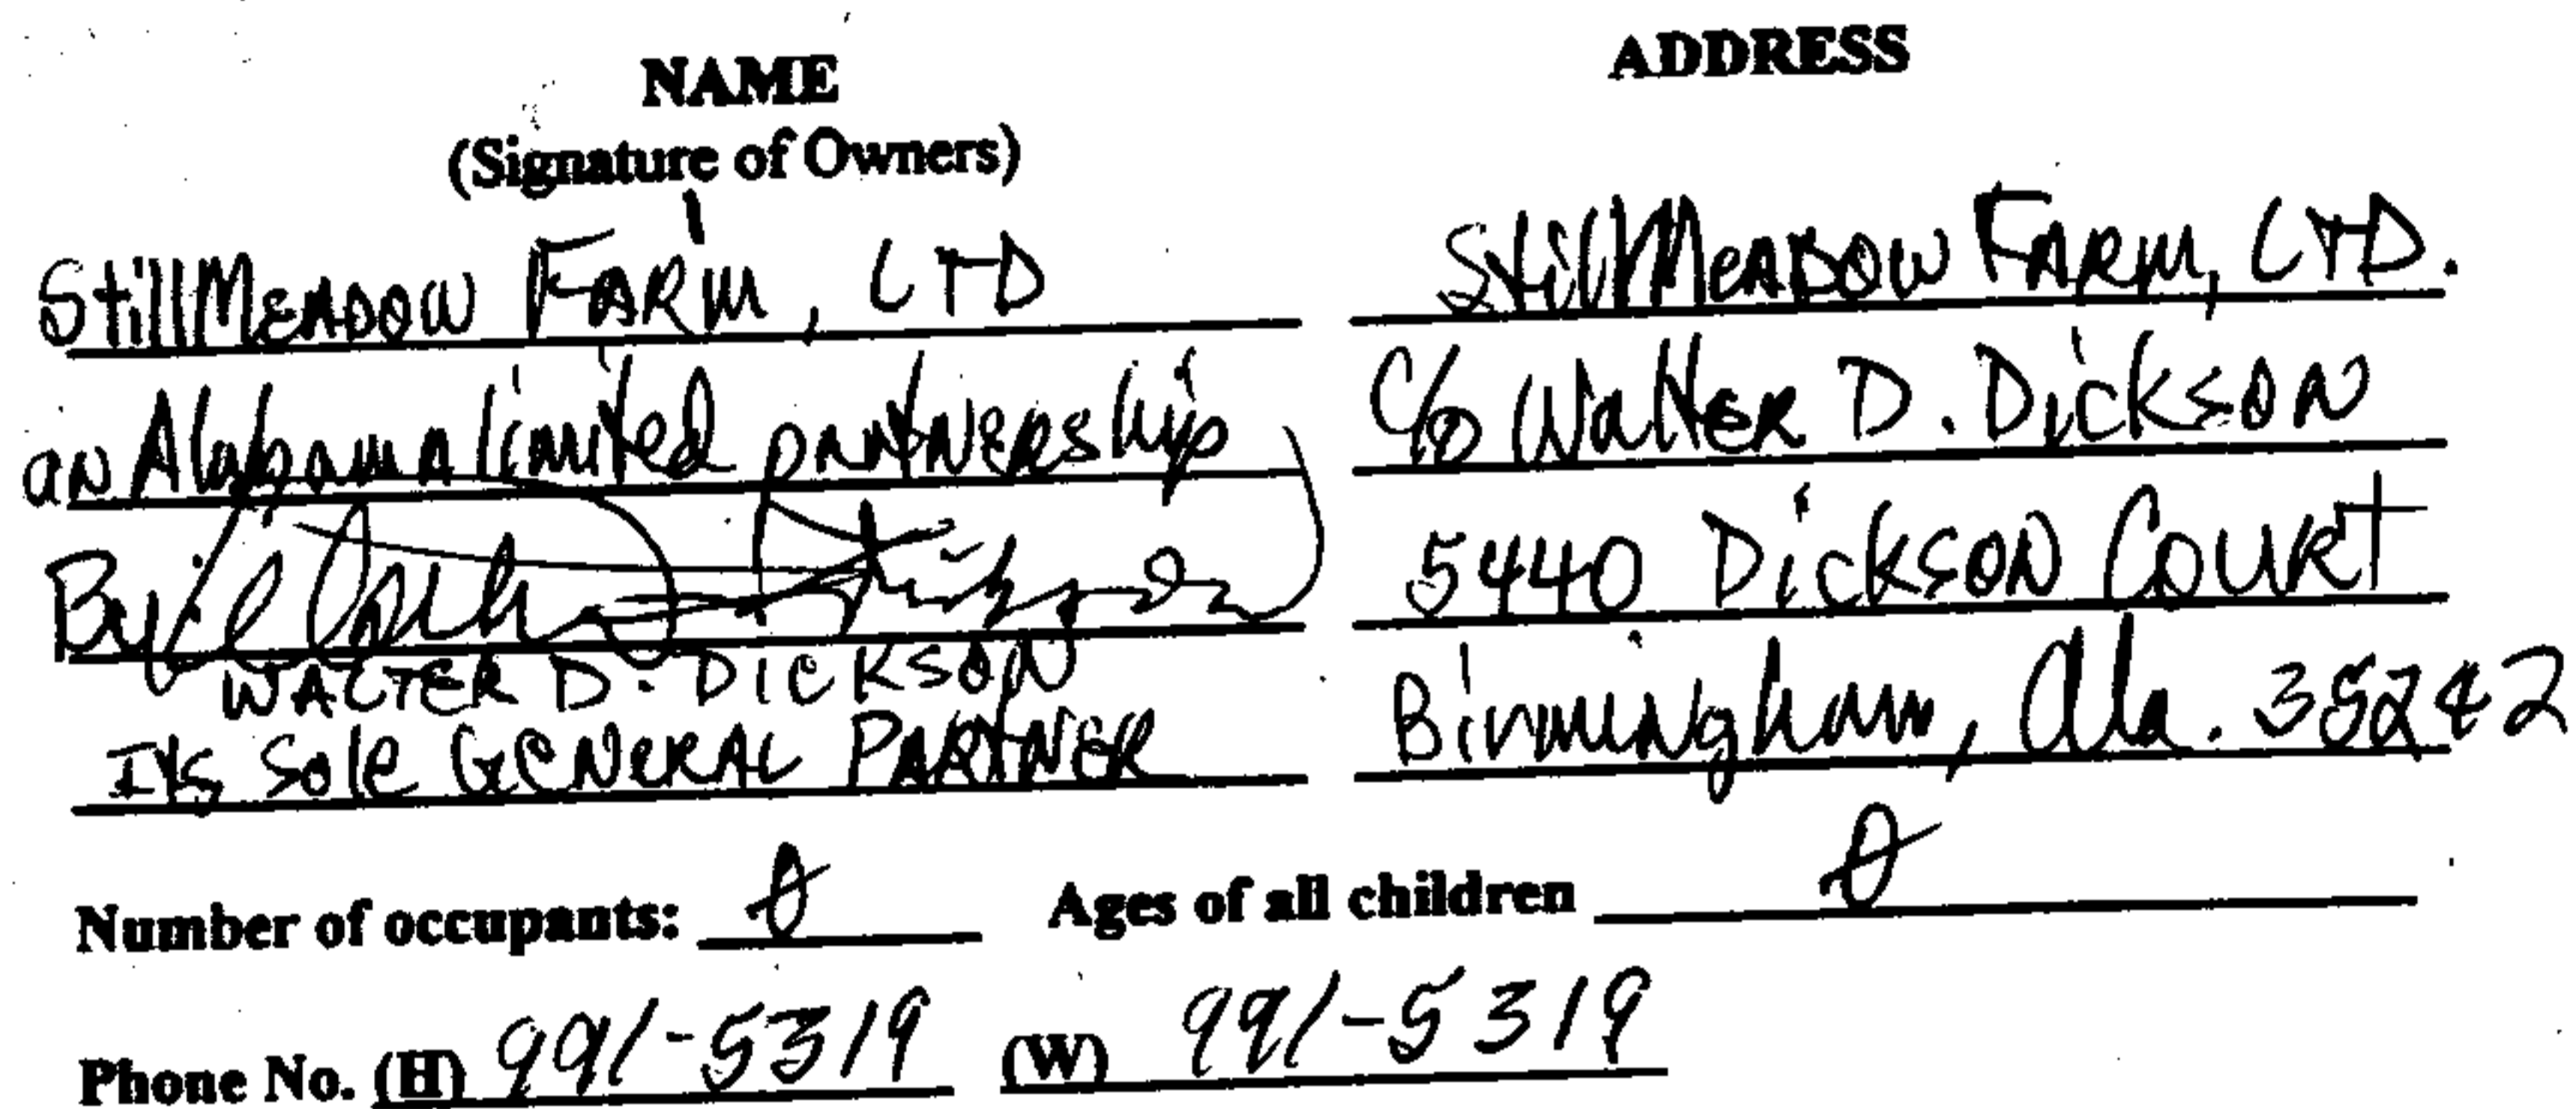 NAME
(Signature of Owners)
StillMEADOW FARM, LTD
an Alabama limited partnership
By:
WALTER D. DICKSON
Its Sole GENERAL PARTNER
ADDRESS
StillMEADOW FARM, LTD.
C/O Walter D. Dickson
5440 Dickson Court
Birmingham, Ala. 35242
Number of occupants: 0 Ages of all children 0
Phone No. (H) 991-5319 (W) 991-5319